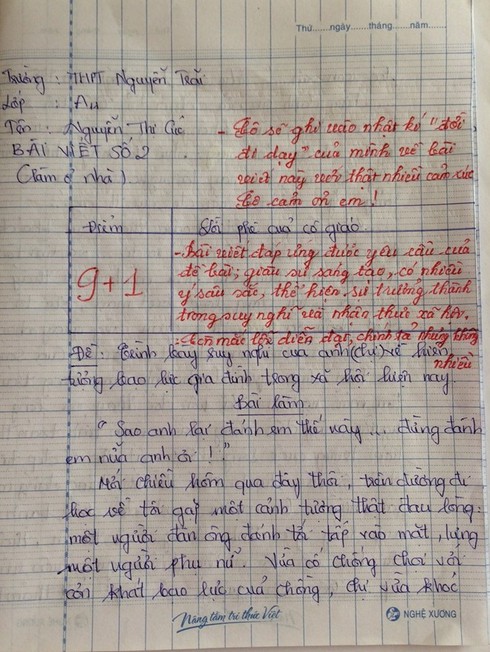 Thứ......ngày......tháng......năm......
Trường : THPT Nguyễn Trãi
Lớp : A4
Tên : Nguyễn Thị Cúc
BÀI VIẾT SỐ 2
(Làm ở nhà)
- Cô sẽ ghi vào nhật kí "đời
đi dạy" của mình về bài
viết này với thật nhiều cảm xúc
Cô cảm ơn em !
Điểm
Lời phê của cô giáo
9+1
- Bài viết đáp ứng được yêu cầu của
đề bài; giàu sự sáng tạo, có nhiều
ý sâu sắc, thể hiện sự trưởng thành
trong suy nghĩ và nhận thức xã hội.
- Còn mắc lỗi diễn đạt, chính tả nhưng không
nhiều
Đề : Trình bày suy nghĩ của anh (chị) về hiện
tượng bạo lực gia đình trong xã hội hiện nay.
Bài làm
" Sao anh lại đánh em thế này ... đừng đánh
em nữa anh ơi ! "
Mới chiều hôm qua đây thôi, trên đường đi
học về tôi gặp một cảnh tượng thật đau lòng :
một người đàn ông đánh tới tấp vào mặt, lưng
một người phụ nữ. Vừa cố chống chọi với
cơn khát bạo lực của chồng, chị vừa khóc
Nâng tầm tri thức Việt
NGHỆ XƯƠNG